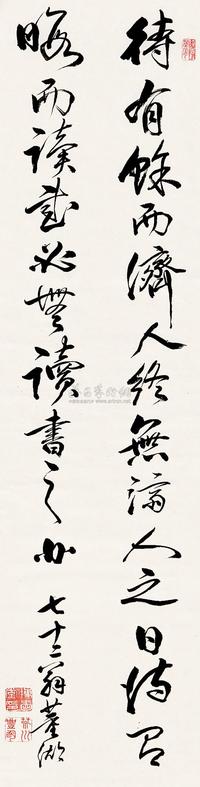 待有餘而濟人終無濟人之日待有
暇而讀書必無讀書之時
七十二翁